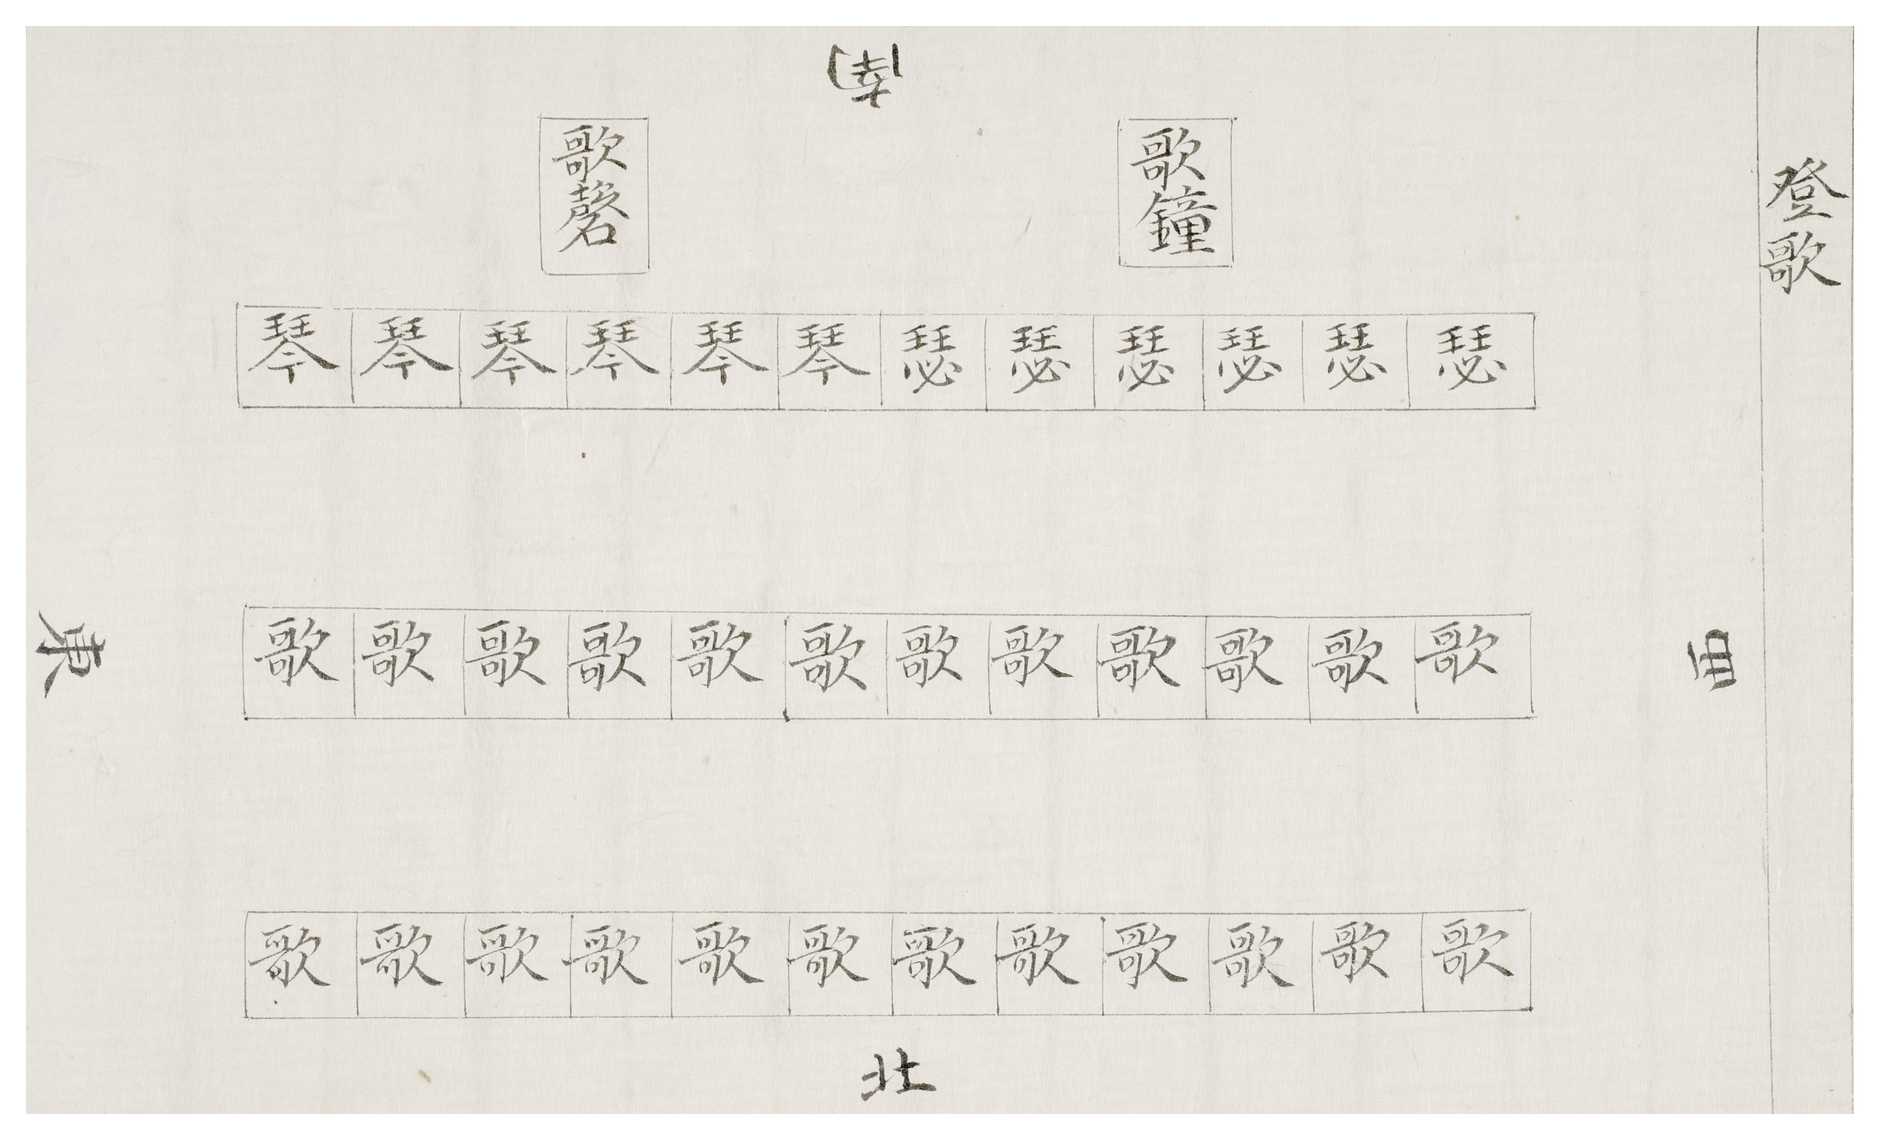 登歌
南
歌磬
歌鐘
琴琴琴琴琴琴瑟瑟瑟瑟瑟瑟
東
西
歌歌歌歌歌歌歌歌歌歌歌歌
歌歌歌歌歌歌歌歌歌歌歌歌
北